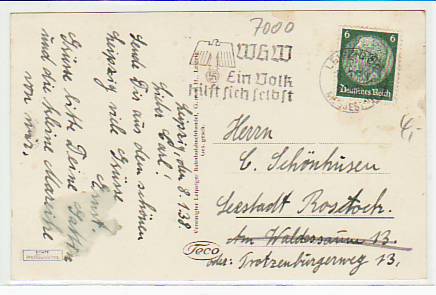 7000
WHW
Ein Volk
hilft sich selbst
6 6
Deutsches Reich
Leipzig, den 8.1.38.
Lieber Carl!
Sende Dir aus dem schönen
Leipzig viele Grüsse
Ernst.
Grüsse bitte Deine Gattin
und die kleine Mareike
von mir.
Herrn
C. Schönhusen
Seestadt Rostock.
Am Waldessaum 13.
oder: Trotzenburgerweg 13.
Foco